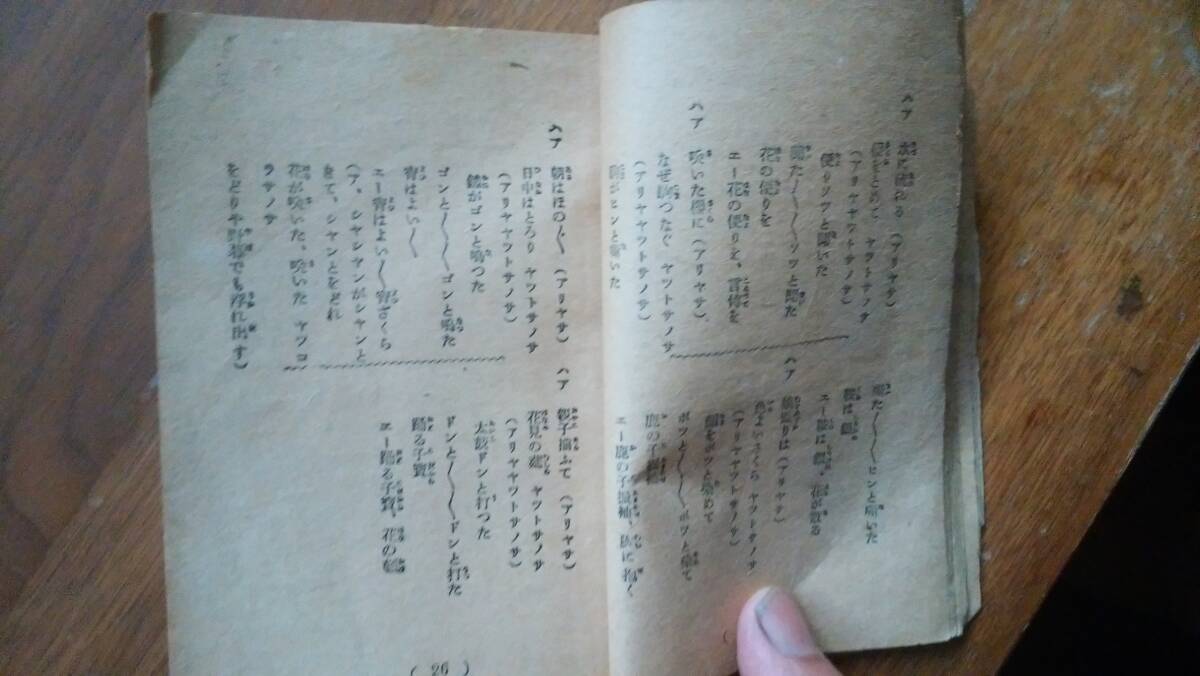 ハア 水に流れる (アリヤサ)
便りソツと聞いた
聞た〱〱ソツと聞た
花の便りを
エー花の便りを、言傳を
ハア 咲いた櫻に (アリヤサ)
なぜ駒つなぐ ヤツトサノサ
(アリヤヤツトサノサ)
駒がヒンと嘶いた
嘶た〱〱ヒンと嘶いた
銀は銀
エー銀は銀、花が散る
ハア (アリヤサ)
色よいさくら ヤツトサノサ
(アリヤヤツトサノサ)
顔をポツと染めて
ポツと〱〱ポツと染て
鹿の子振袖
エー鹿の子振袖、私に着く
ハア 朝はほの〲 (アリヤサ)
日中はとろり ヤツトサノサ
(アリヤヤツトサノサ)
鐘がゴンと鳴つた
ゴンと〱〱ゴンと鳴た
宵はよい〱
エー宵はよい〱宵ざくら
(ア、シヤンシヤンがシヤンと
きて、シヤンとをどれ
花が咲いた、咲いた ヤツコ
ラサノサ
をどりや野暮でも浮れ出す)
ハア 親子揃ふて (アリヤサ)
花見の筵 ヤツトサノサ
(アリヤヤツトサノサ)
太鼓ドンと打つた
ドンと〱〱ドンと打た
踊る子寳
エー踊る子寳、花の
( 26 )